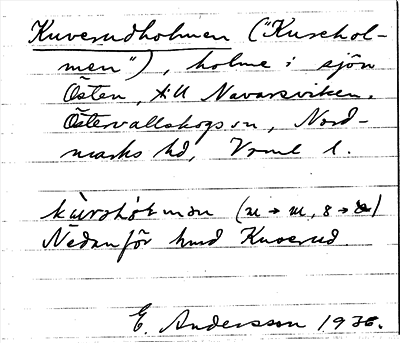 Kuverudholmen ("Kuschol-
men"), holme i sjön
Östen, till Navarsviken.
Östervallskogs sn, Nord-
marks hd, Vrml l.
(u → ɯ, 8 →
Nedanför hmd Kuverud.
E. Andersson 1936.